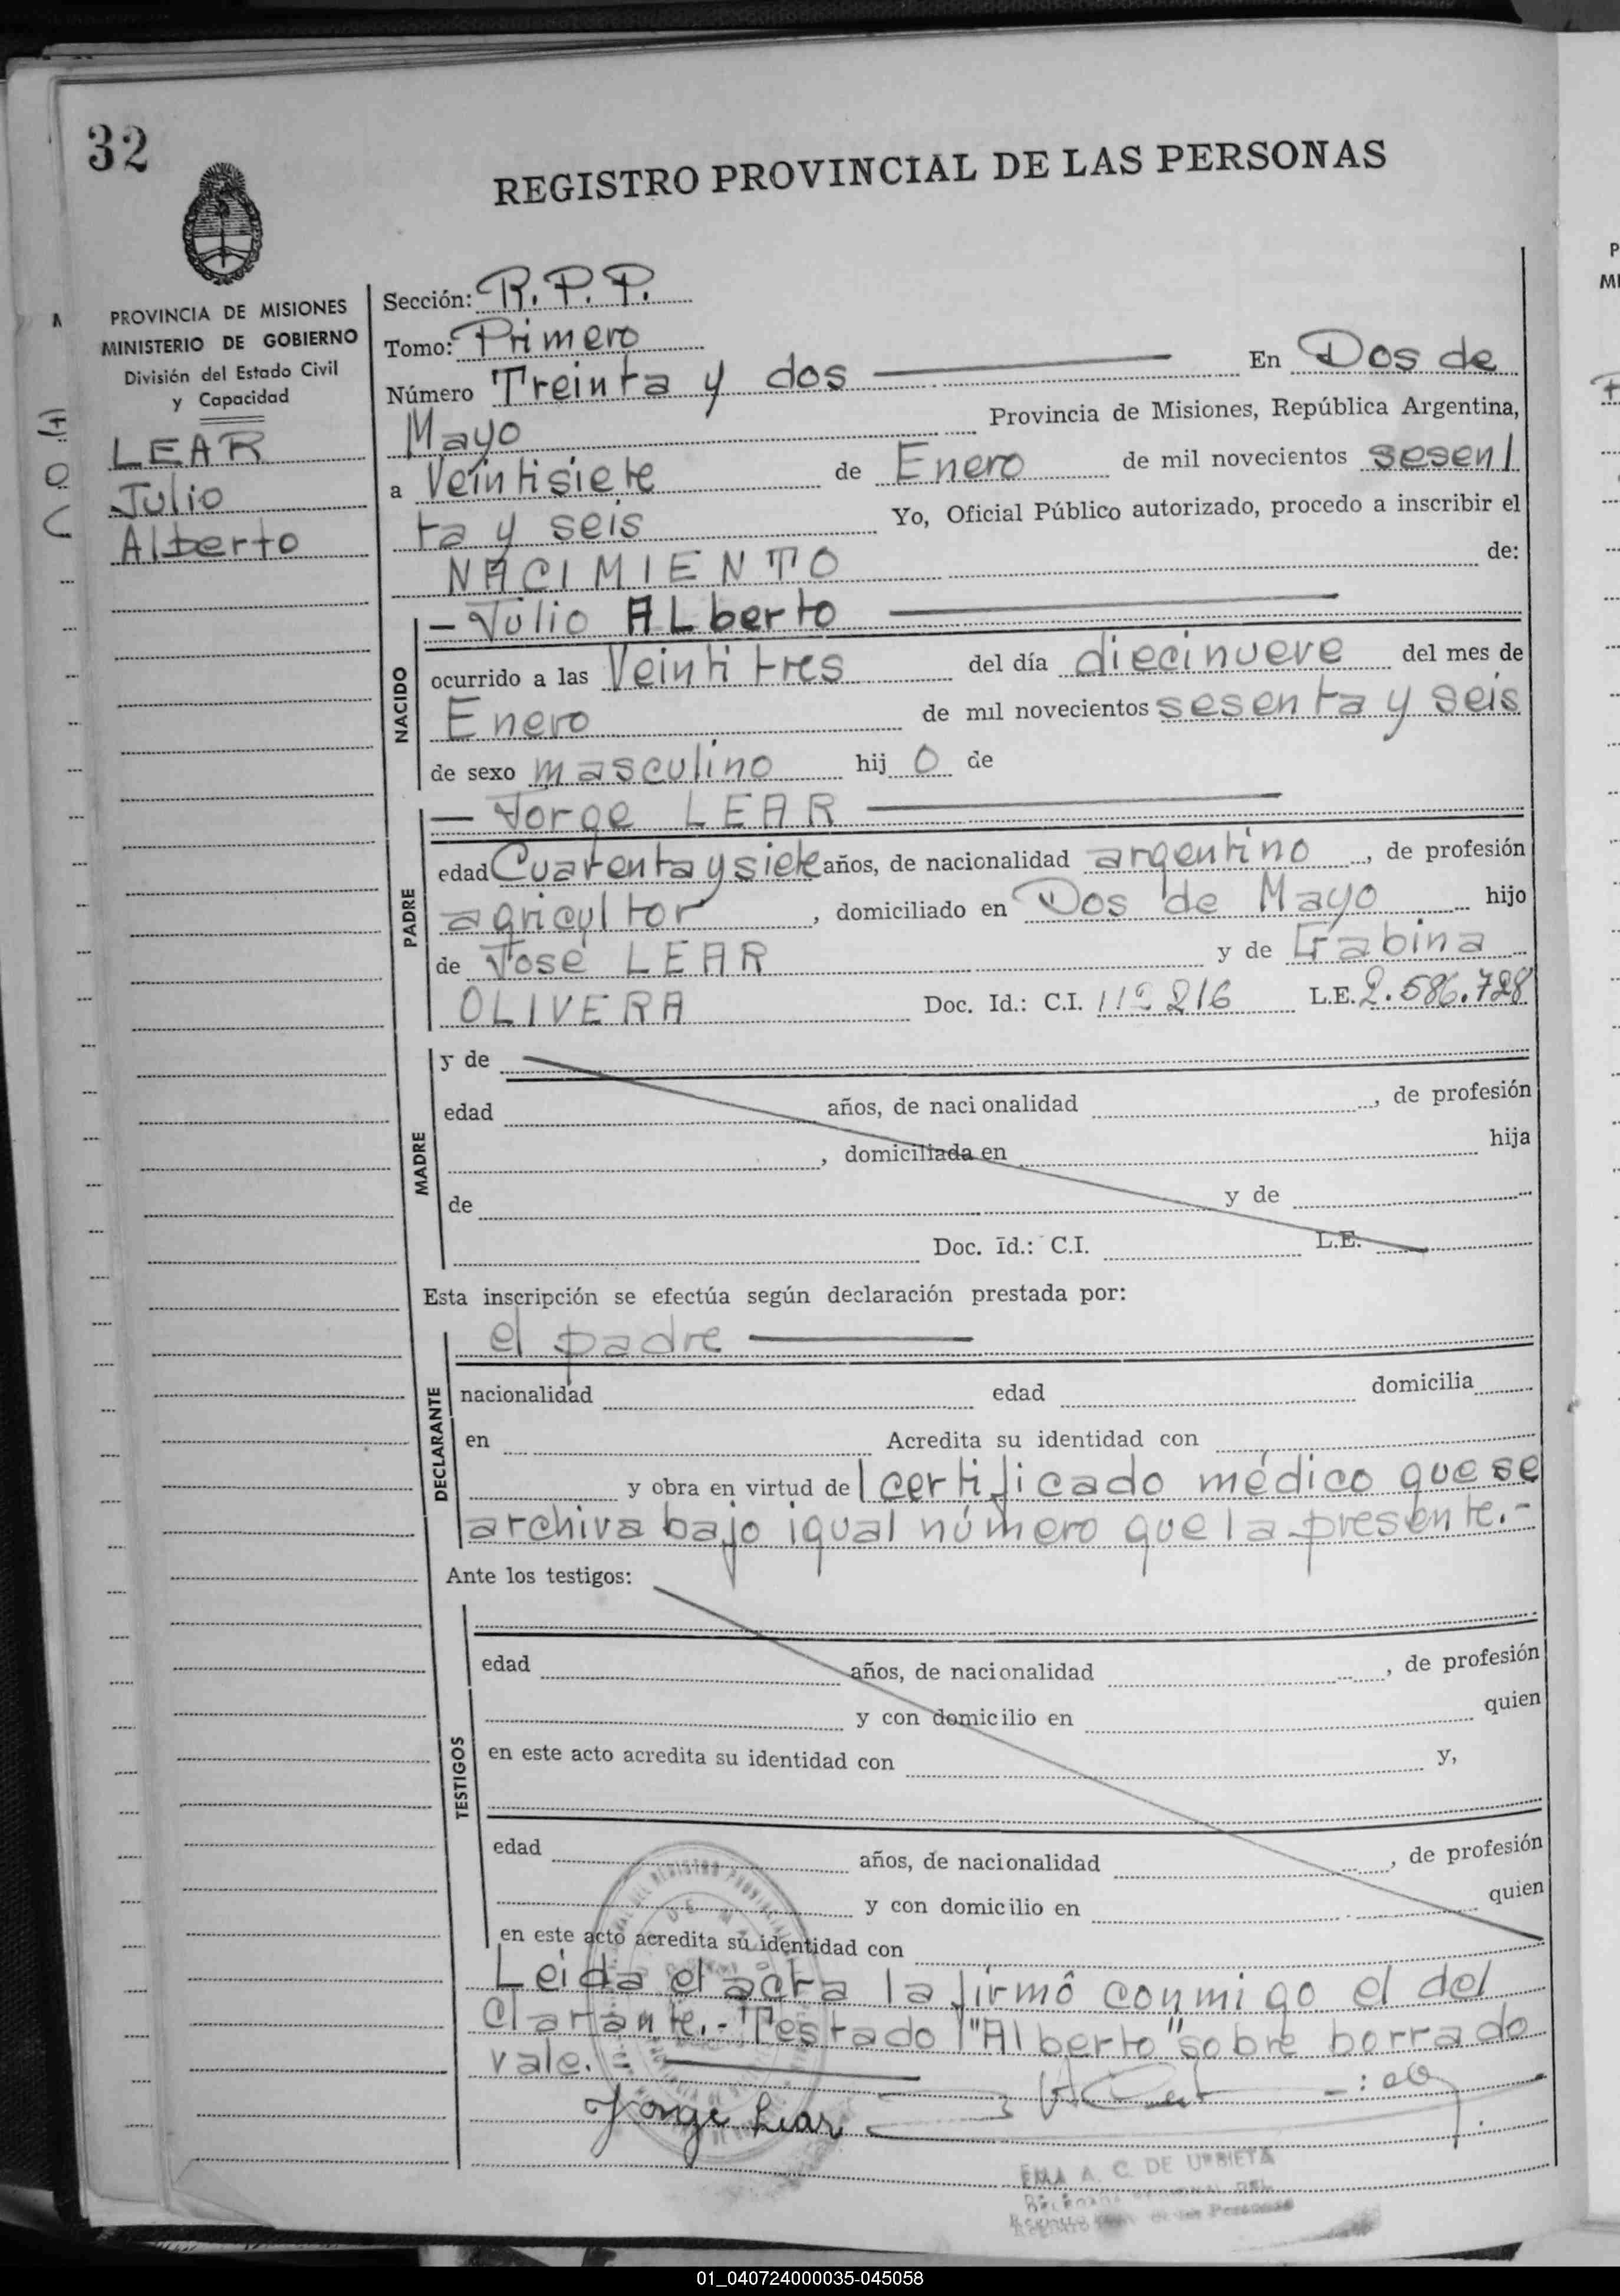 32
REGISTRO PROVINCIAL DE LAS PERSONAS
PROVINCIA DE MISIONES
MINISTERIO DE GOBIERNO
División del Estado Civil
y Capacidad
LEAR
Julio
Alberto
Sección: R.P.P.
Tomo: Primero
Número Treinta y dos En Dos de
Mayo Provincia de Misiones, República Argentina,
a Veintisiete de Enero de mil novecientos sesen
ta y seis Yo, Oficial Público autorizado, procedo a inscribir el
NACIMIENTO de:
NACIDO
- Julio ALberto
ocurrido a las Veintitres del día diecinueve del mes de
Enero de mil novecientos sesenta y seis
de sexo masculino hij o de
PADRE
- Jorge LEAR
edad Cuarenta y siete años, de nacionalidad argentino, de profesión
agricultor, domiciliado en Dos de Mayo hijo
de José LEAR y de Gabina
OLIVERA Doc. Id.: C.I. L.E. 2.586.728
MADRE
y de
edad años, de nacionalidad , de profesión
, domiciliada en hija
de y de
Doc. Id.: C.I. L.E.
Esta inscripción se efectúa según declaración prestada por:
DECLARANTE
el padre
nacionalidad edad domicilia
en Acredita su identidad con
y obra en virtud de certificado médico que se
archiva bajo igual número que la presente.-
Ante los testigos:
TESTIGOS
edad años, de nacionalidad , de profesión
y con domicilio en quien
en este acto acredita su identidad con y,
edad años, de nacionalidad , de profesión
y con domicilio en quien
en este acto acredita su identidad con
Leida el acta la firmó conmigo el de
clarante.- Testado "Alberto" sobre borrado
vale.
Jorge Lear
EMA A. C. DE URBIETA
01_040724000035-045058